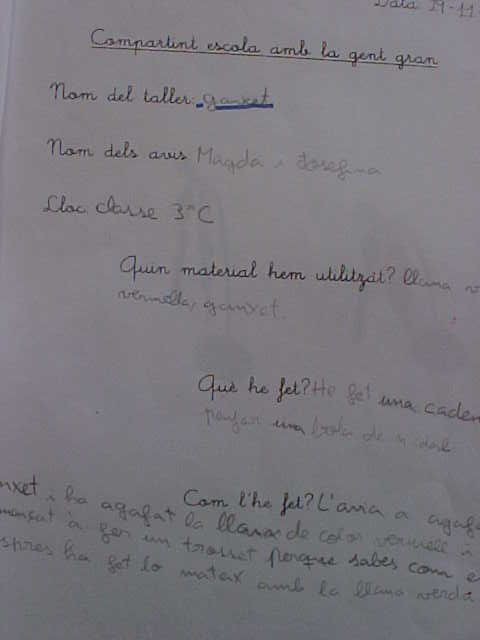 Data 29-11
Compartint escola amb la gent gran
Nom del taller: ganxet
Nom dels avis Magda i Josefina
Lloc classe 3r C
Quin material hem utilitzat? llana
vermella, ganxet.
Què he fet? He fet una caden
una bola de nadal
Com l'he fet? L'avia a agafa
nxet i ha agafat la llana de color vermell i
mençat à fer un trosset perque sabes com e
spres ha fet lo mateix amb la llana verda